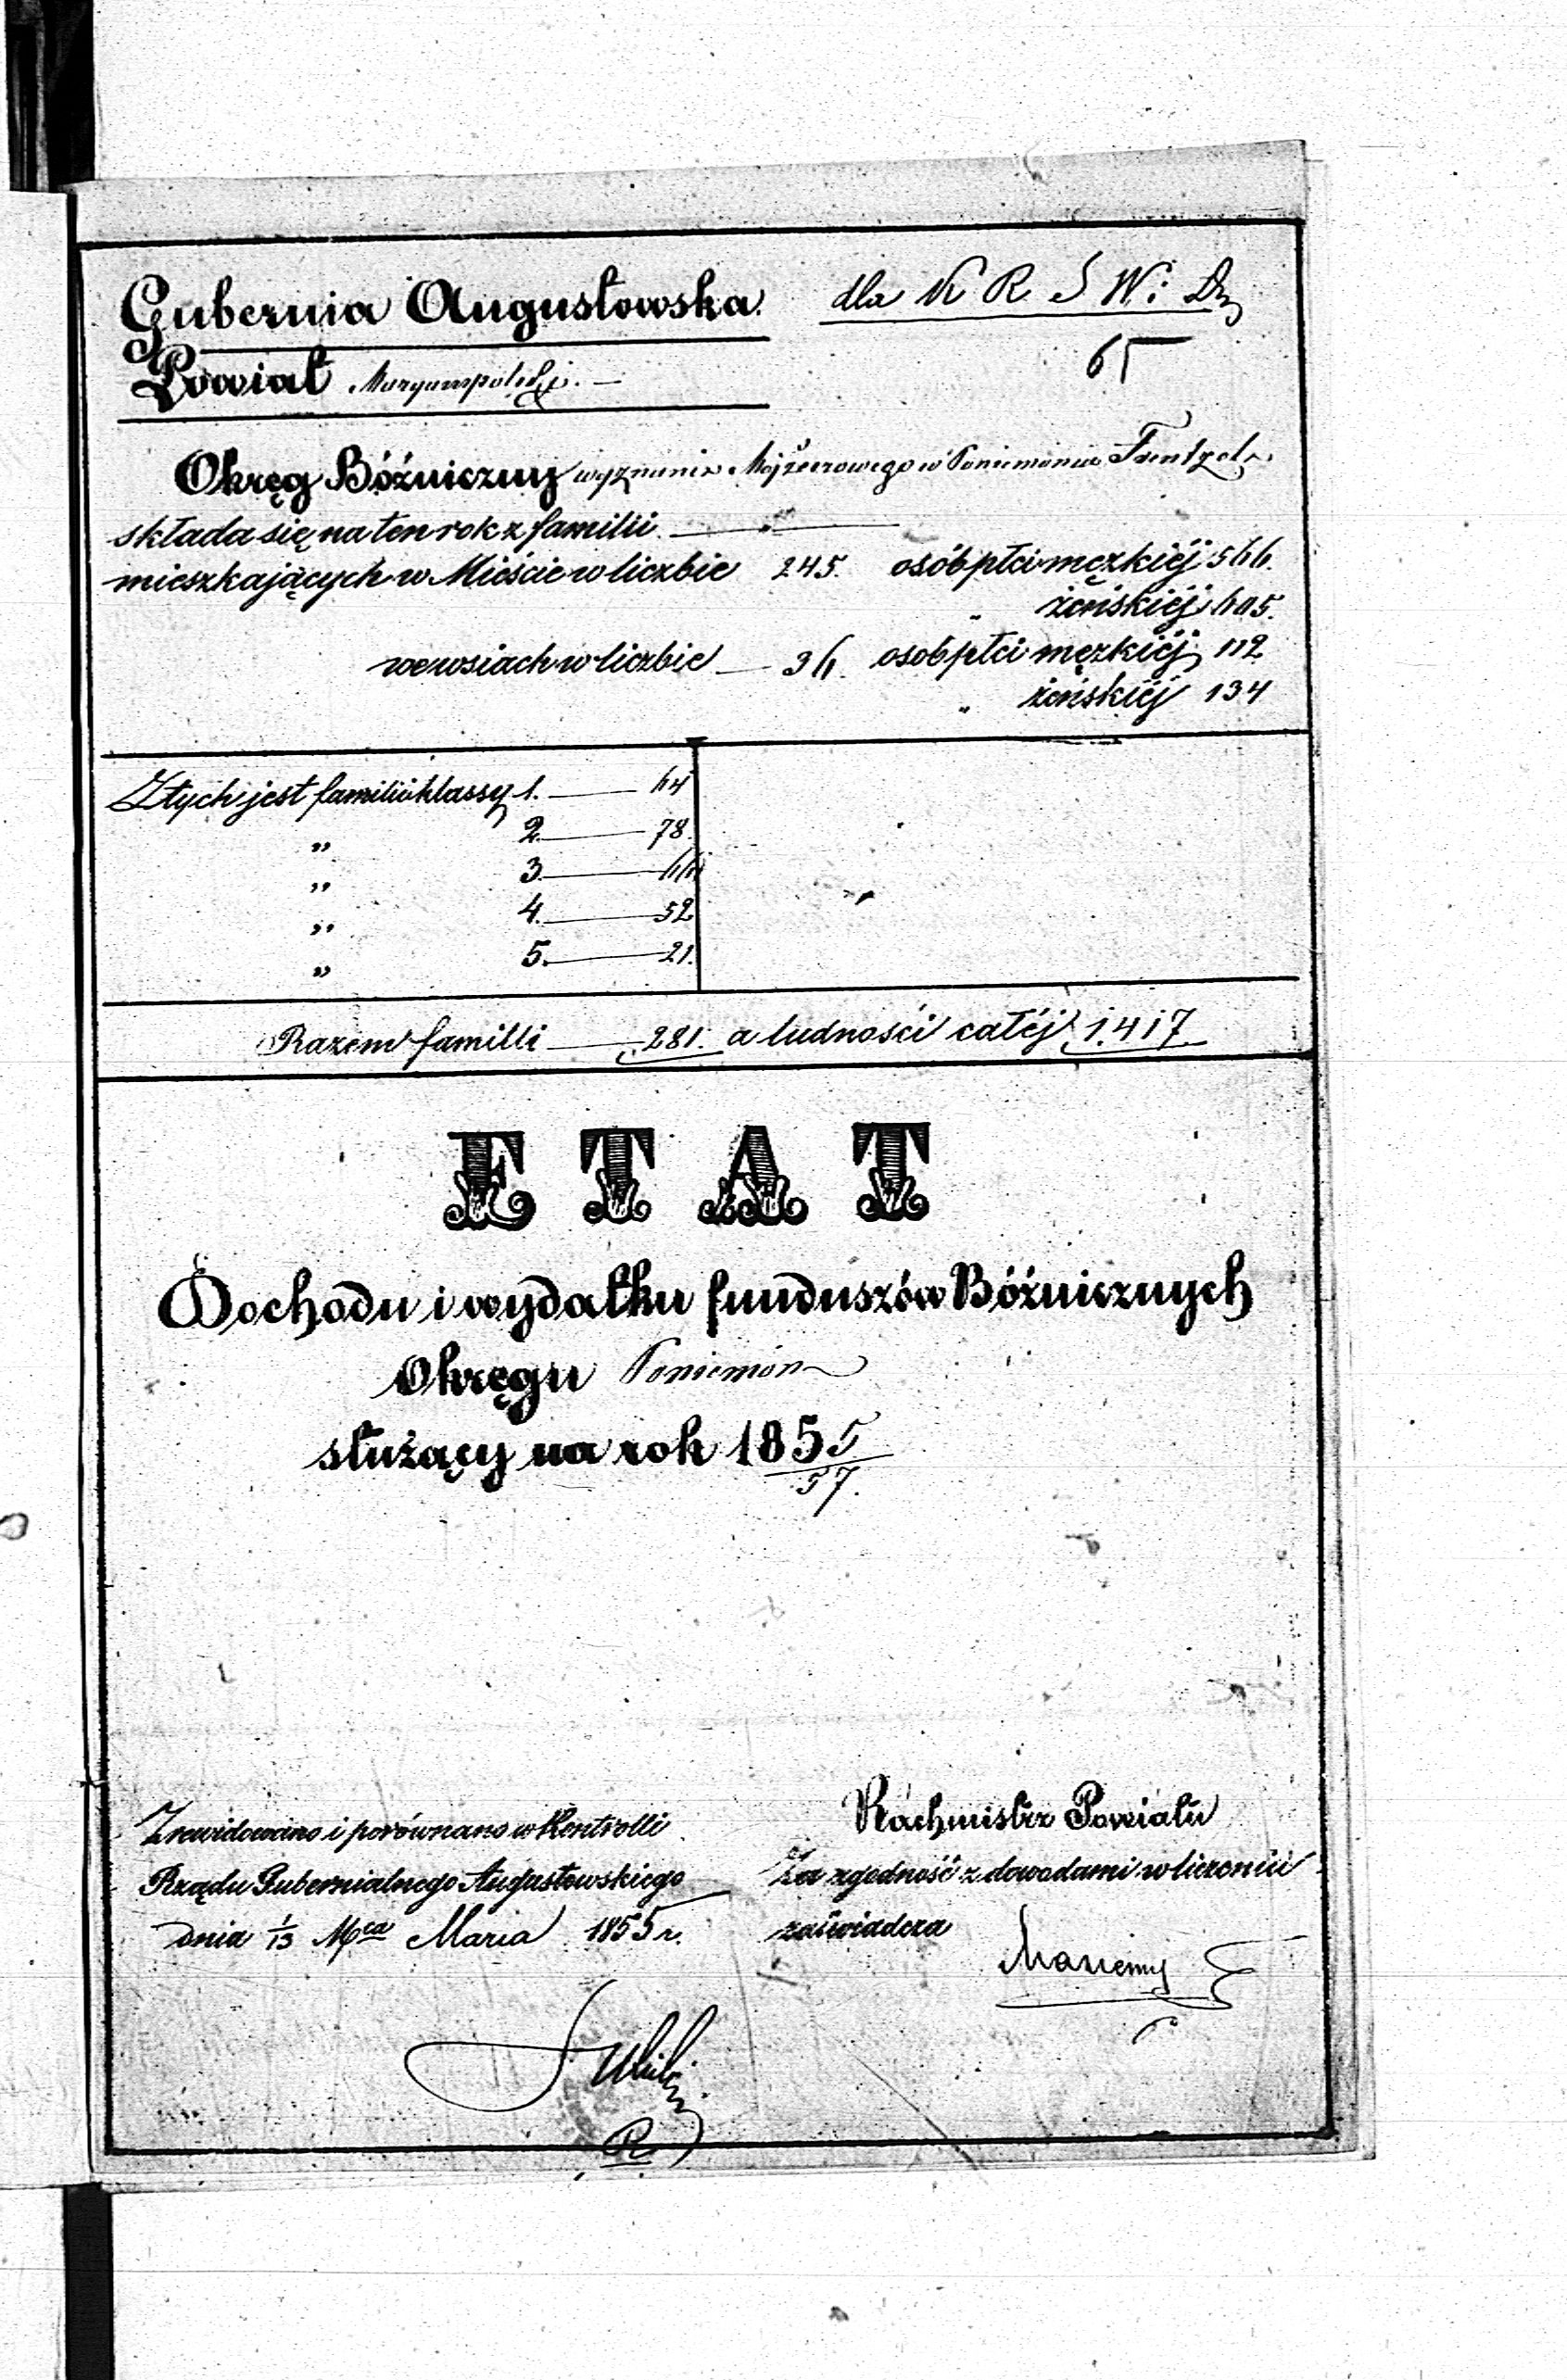 Gubernia Augustowska. dla K R S W i D
65
Powiat Maryampolski. —
Okręg Bóźniczny wyznania Mojżeszowego w Poniemoniu
składa się na ten rok z familii.
mieszkających w Mieście w liczbie 245. osób płci męzkiéj 566.
„ żeńskiéj 605.
we wsiach w liczbie — 36. osob płci męzkiéj 112
„ żeńskiéj 134
Z tych jest familii klassy 1. — 64
„ 2. — 78.
„ 3. — 66
„ 4. — 52
„ 5. — 21.
Razem familli — 281. a ludności całéj 1417
ETAT
Dochodu i wydatku funduszów Bóźnicznych
Okręgu Poniemon
służący na rok 1855
57.
Rachmistrz Powiatu
Zrewidowano i porównano w Kontrolli
Za zgodność z dowodami w liczeniu
Rządu Gubernialnego Augustowskiego
zaświadcza
dnia 1/13 Mca Marca 1855 r.